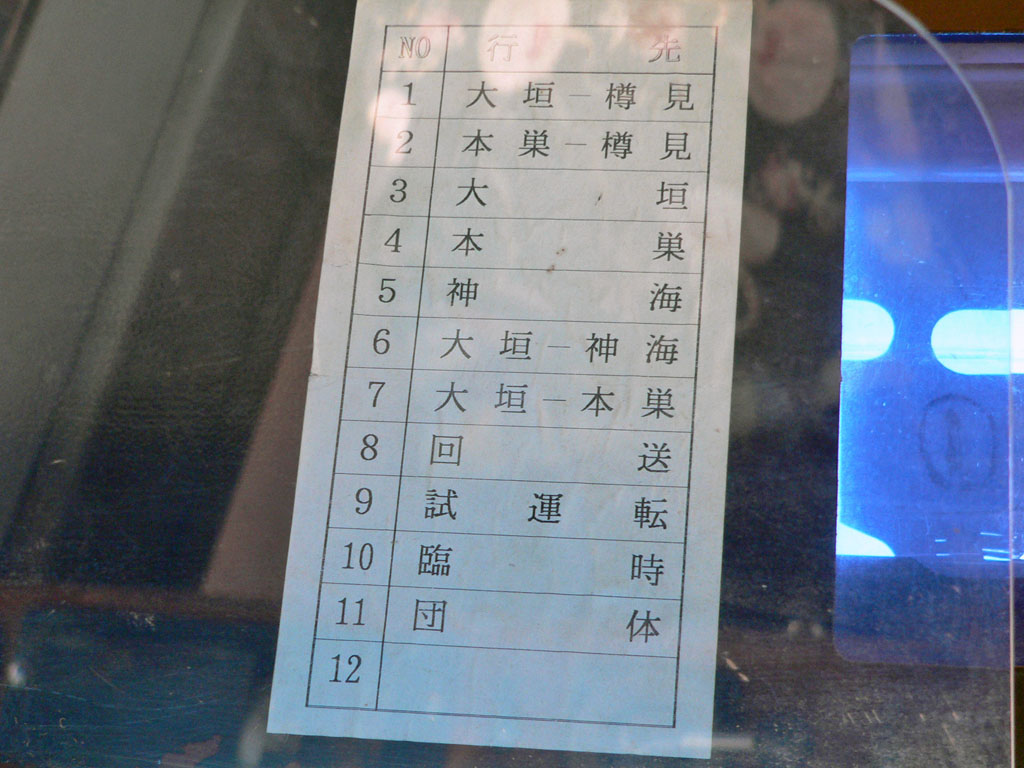 NO 行先
1 大垣－樽見
2 本巣－樽見
3 大垣
4 本巣
5 神海
6 大垣－神海
7 大垣－本巣
8 回送
9 試運転
10 臨時
11 団体
12